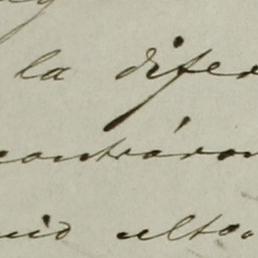 la difer
contráron
uio ulto